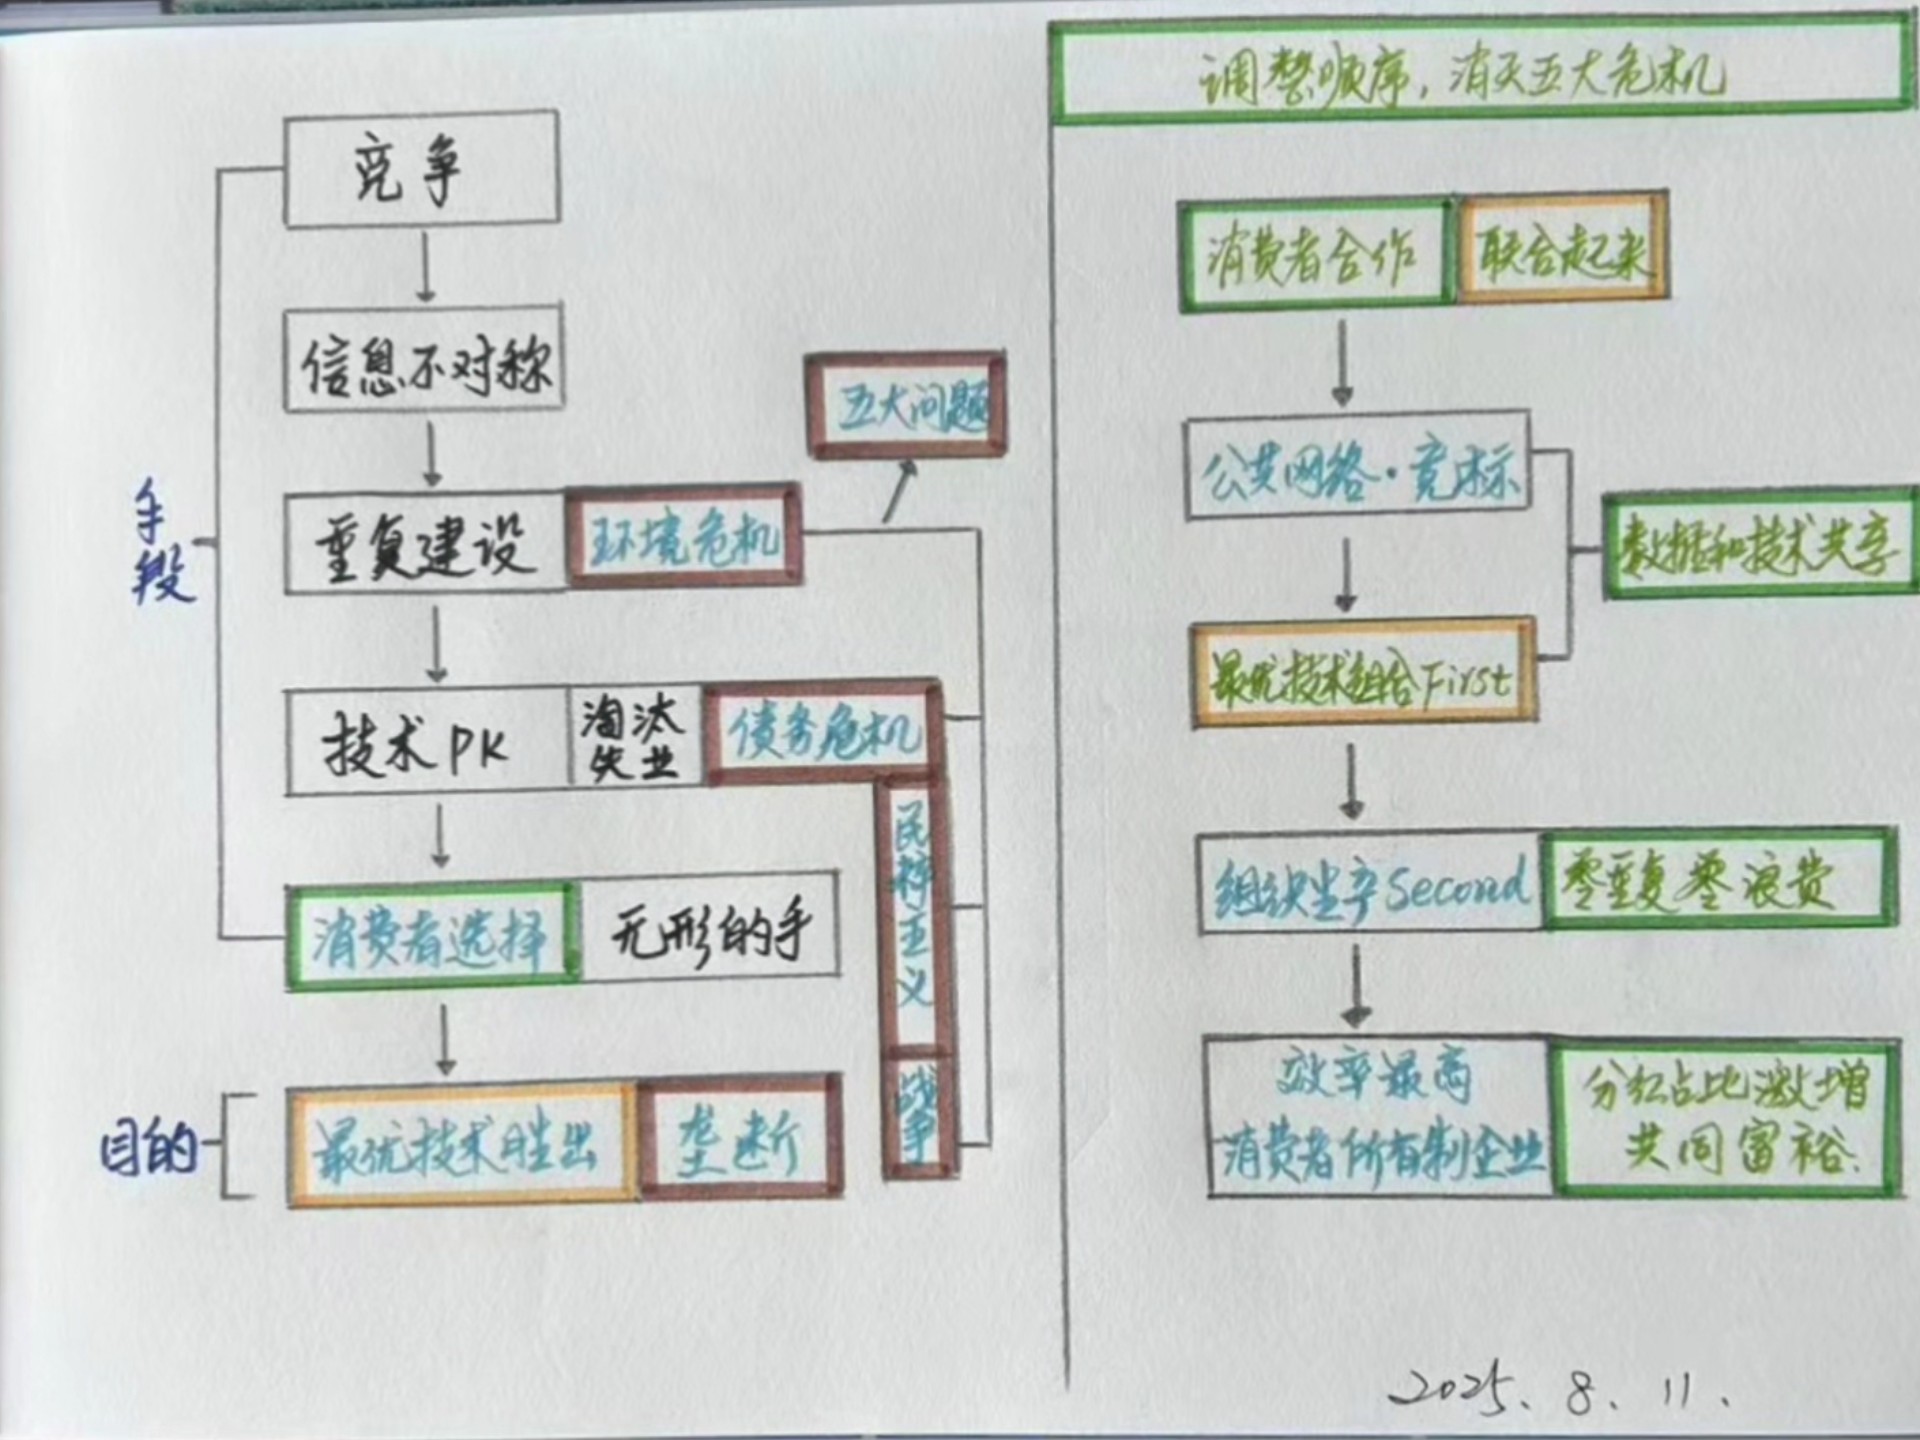 调整顺序，消灭五大危机
竞争
信息不对称
五大问题
手段
重复建设 环境危机
技术PK 淘汰失业 债务危机
民粹主义
消费者选择 无形的手
战争
目的
最优技术胜出 垄断
消费者合作 联合起来
公共网络·竞标
数据和技术共享
最优技术组合First
组织生产Second 零重复零浪费
效率最高
消费者所有制企业
分红占比激增
共同富裕.
2025.8.11.